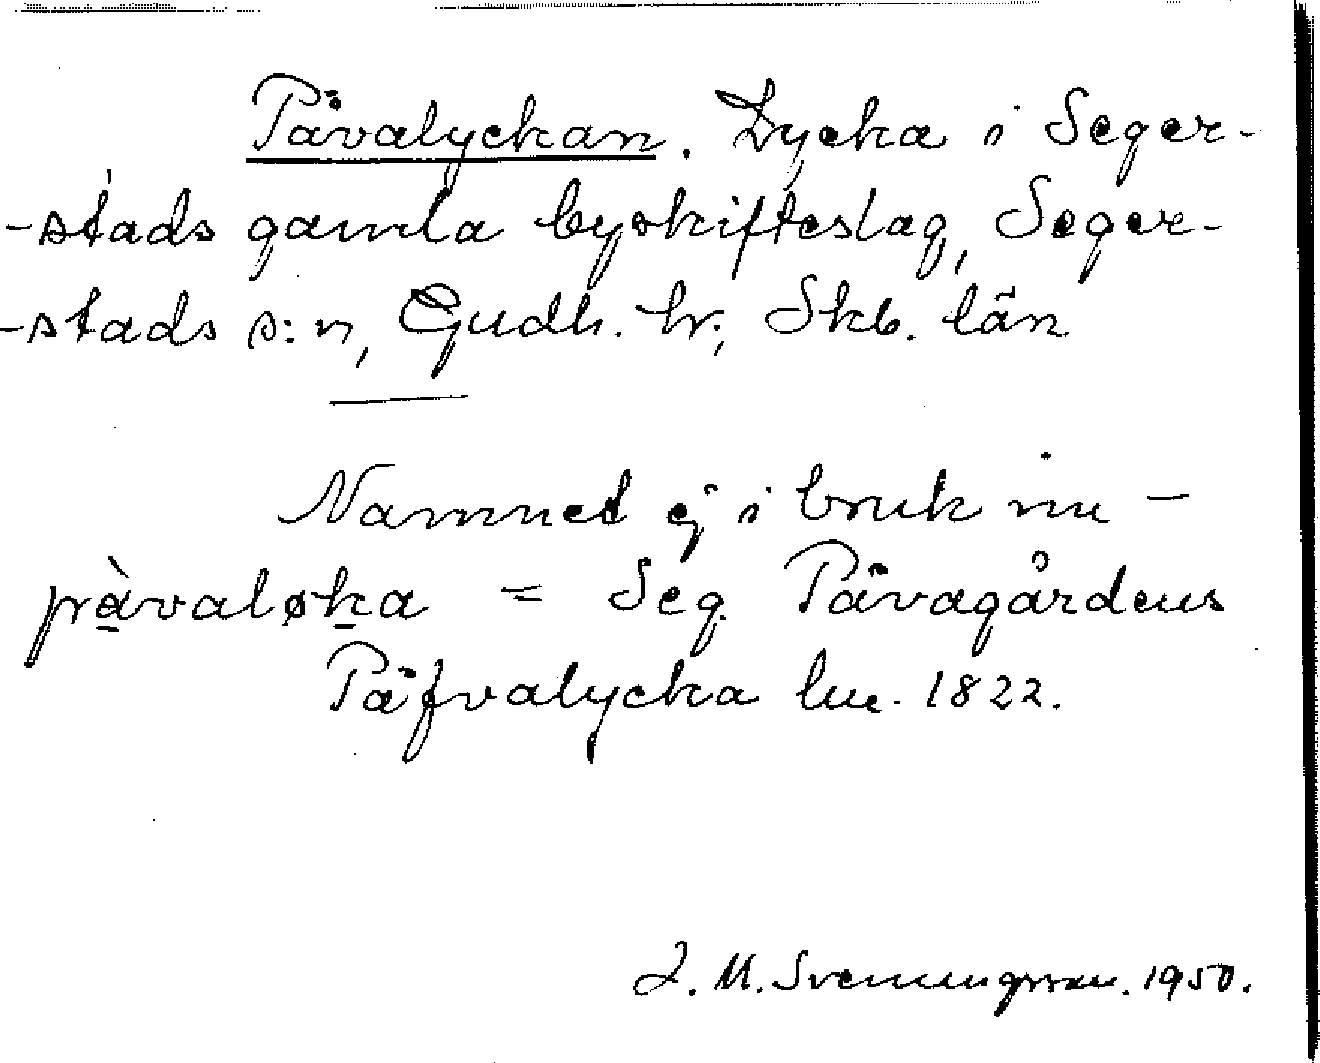 Pävalyckan. Lycka i Seger-
-stads gamla byskifteslag, Seger-
-stads s:n, Gudh. hr, Skb. län
Namnet ej i bruk nu –
pràvaløka = Seg. Pävagårdens
Päfvalycka lm. 1822.
J. M. Svenningsson. 1950.